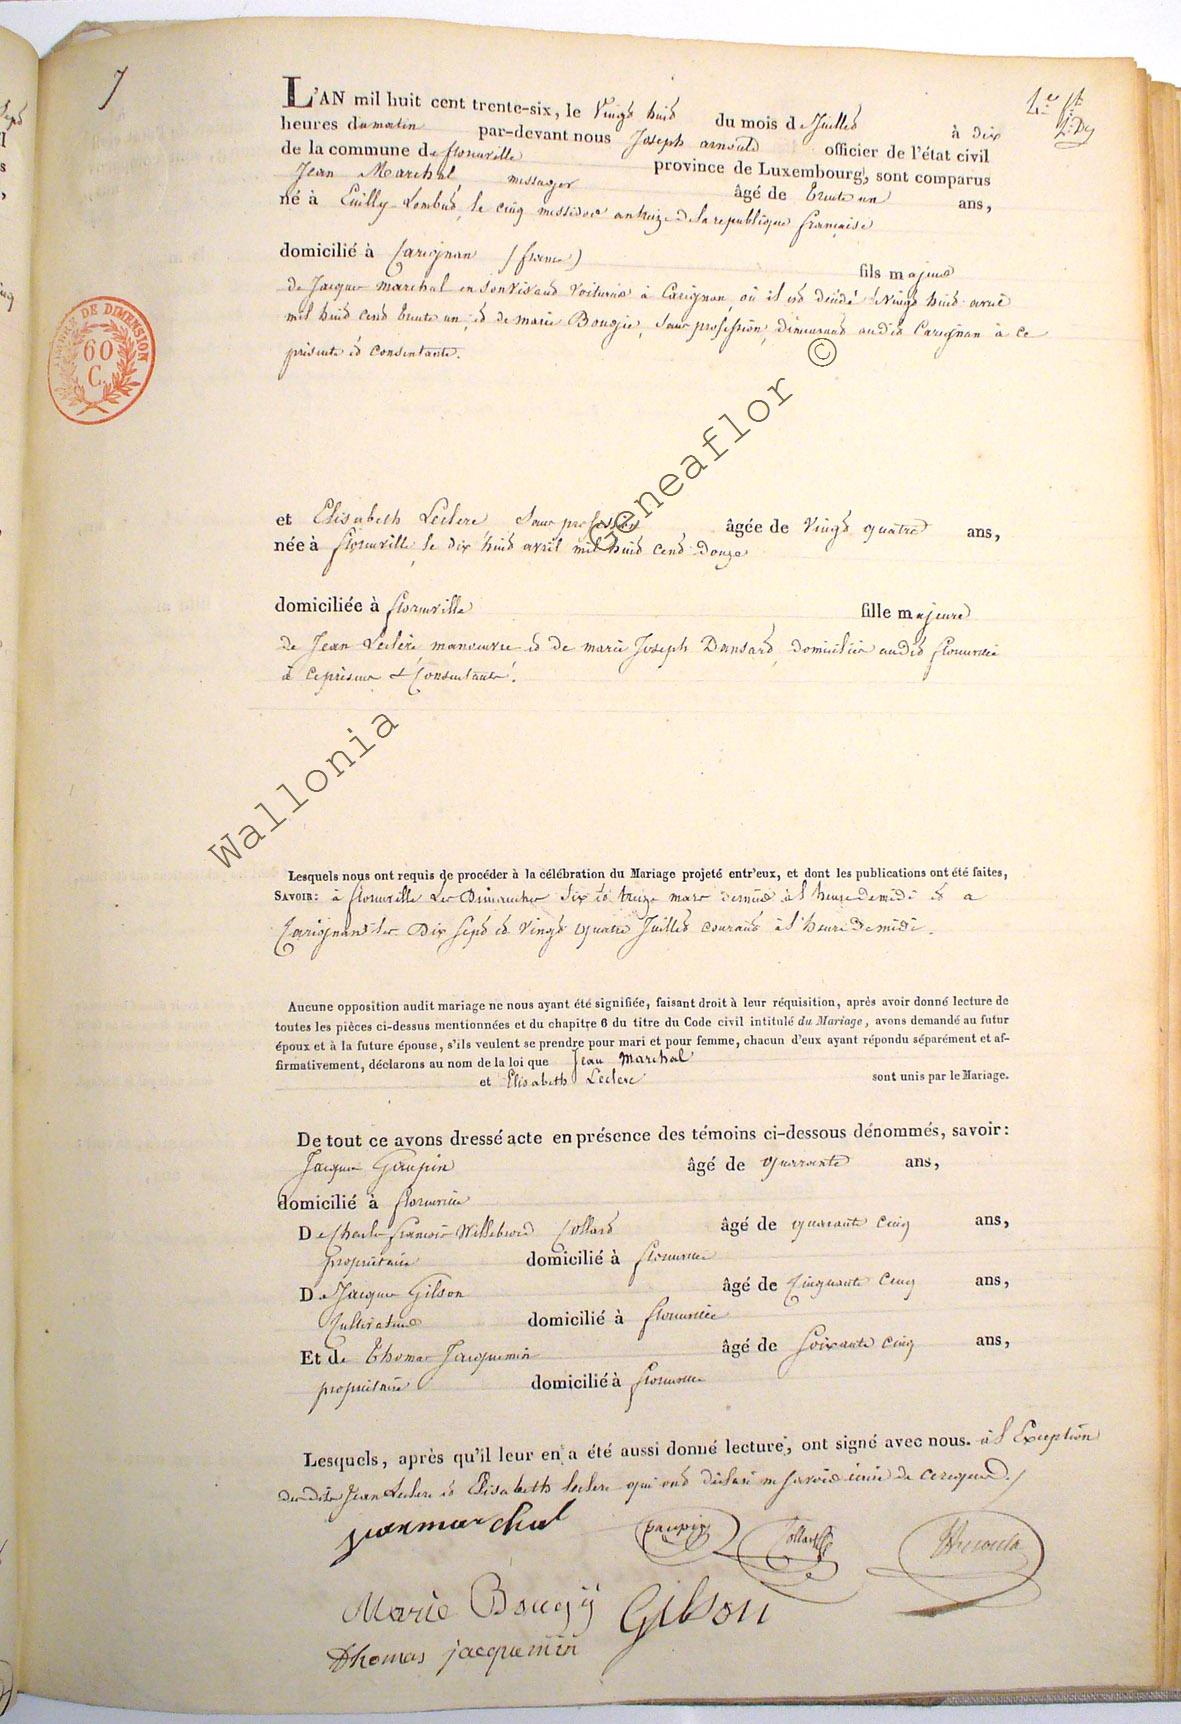 7
L'AN mil huit cent trente-six, le Vingt huit du mois de Juillet à dix
heures du matin par-devant nous Joseph arnould officier de l'état civil
de la commune de florenville province de Luxembourg, sont comparus
Jean Marchal messager âgé de trente un ans,
né à Euilly-Lombut, le cinq messidor an treize de la republique française
domicilié à Carignan (france) fils majeur
de Jacques marchal en son vivant voiturier à Carignan, où il est décédé le vingt huit avril
mil huit cent trente un, et de marie Bougie, sans profession, demeurant audit Carignan à ce
présente et consentante.
TIMBRE DE DIMENSION
60
C.
et Elisabeth Leclere sans profession âgée de vingt quatre ans,
née à florenville, le dix huit avril mil huit cent douze
domiciliée à florenville fille majeure
de Jean Leclère manoeuvre et de marie Joseph Dansard, domiciliés audit florenville
à ce présens & consentants.
Lesquels nous ont requis de procéder à la célébration du Mariage projeté entr'eux, et dont les publications ont été faites,
SAVOIR: à florenville les Dimanches six et treize mars dernier à l'heure de midi et a
Carignan les Dix sept et vingt quatre Juillet courant à l'heure de midi.
Aucune opposition audit mariage ne nous ayant été signifiée, faisant droit à leur réquisition, après avoir donné lecture de
toutes les pièces ci-dessus mentionnées et du chapitre 6 du titre du Code civil intitulé du Mariage, avons demandé au futur
époux et à la future épouse, s'ils veulent se prendre pour mari et pour femme, chacun d'eux ayant répondu séparément et af-
firmativement, déclarons au nom de la loi que Jean Marchal
et Elisabeth Leclere sont unis par le Mariage.
De tout ce avons dressé acte en présence des témoins ci-dessous dénommés, savoir:
Jacques Gaupin âgé de quarante ans,
domicilié à florenville
De Charles françois Willebrord Collard âgé de quarante cinq ans,
propriétaire domicilié à florenville
De Jacques Gilson âgé de Cinquante cinq ans,
Cultivateur domicilié à florenville
Et de Thomas Jacquemin âgé de soixante cinq ans,
propriétaire domicilié à florenville
Lesquels, après qu'il leur en a été aussi donné lecture, ont signé avec nous. à l'Exception
desdits Jean Leclere et Elisabeth leclere qui ont déclaré ne savoir écrire de ce requis.
jean marchal gaupin Collard
Marie Bougÿ Gilson
Thomas jacquemin
Wallonia Geneaflor ©